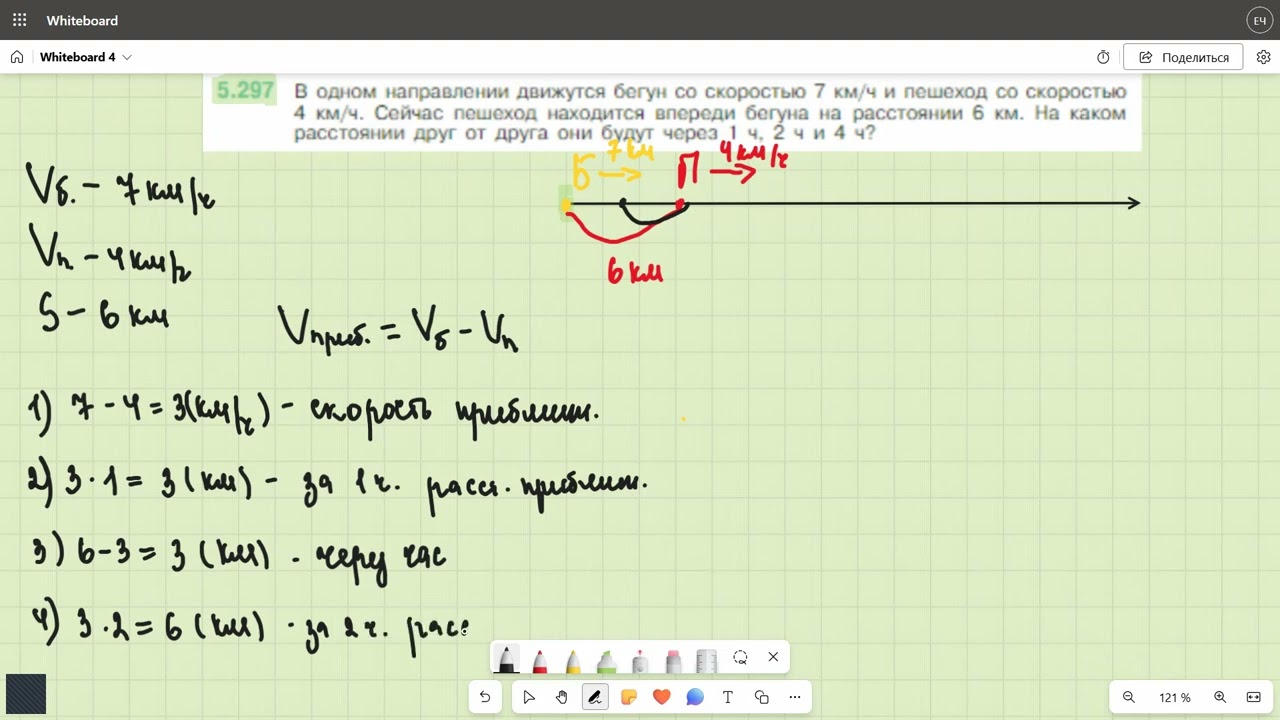 Whiteboard
ЕЧ
Whiteboard 4
Поделиться
5.297 В одном направлении движутся бегун со скоростью 7 км/ч и пешеход со скоростью
4 км/ч. Сейчас пешеход находится впереди бегуна на расстоянии 6 км. На каком
расстоянии друг от друга они будут через 1 ч, 2 ч и 4 ч?
Б 7 км П 4 км/ч
6 км
Vб. - 7 км/ч
Vп - 4 км/ч
S - 6 км
Vприб. = Vб - Vп
1) 7 - 4 = 3 (км/ч) - скорость приближ.
2) 3 · 1 = 3 (км) - за 1 ч. расст. приближ.
3) 6 - 3 = 3 (км) - через час
4) 3 · 2 = 6 (км) - за 2 ч. расс
121 %